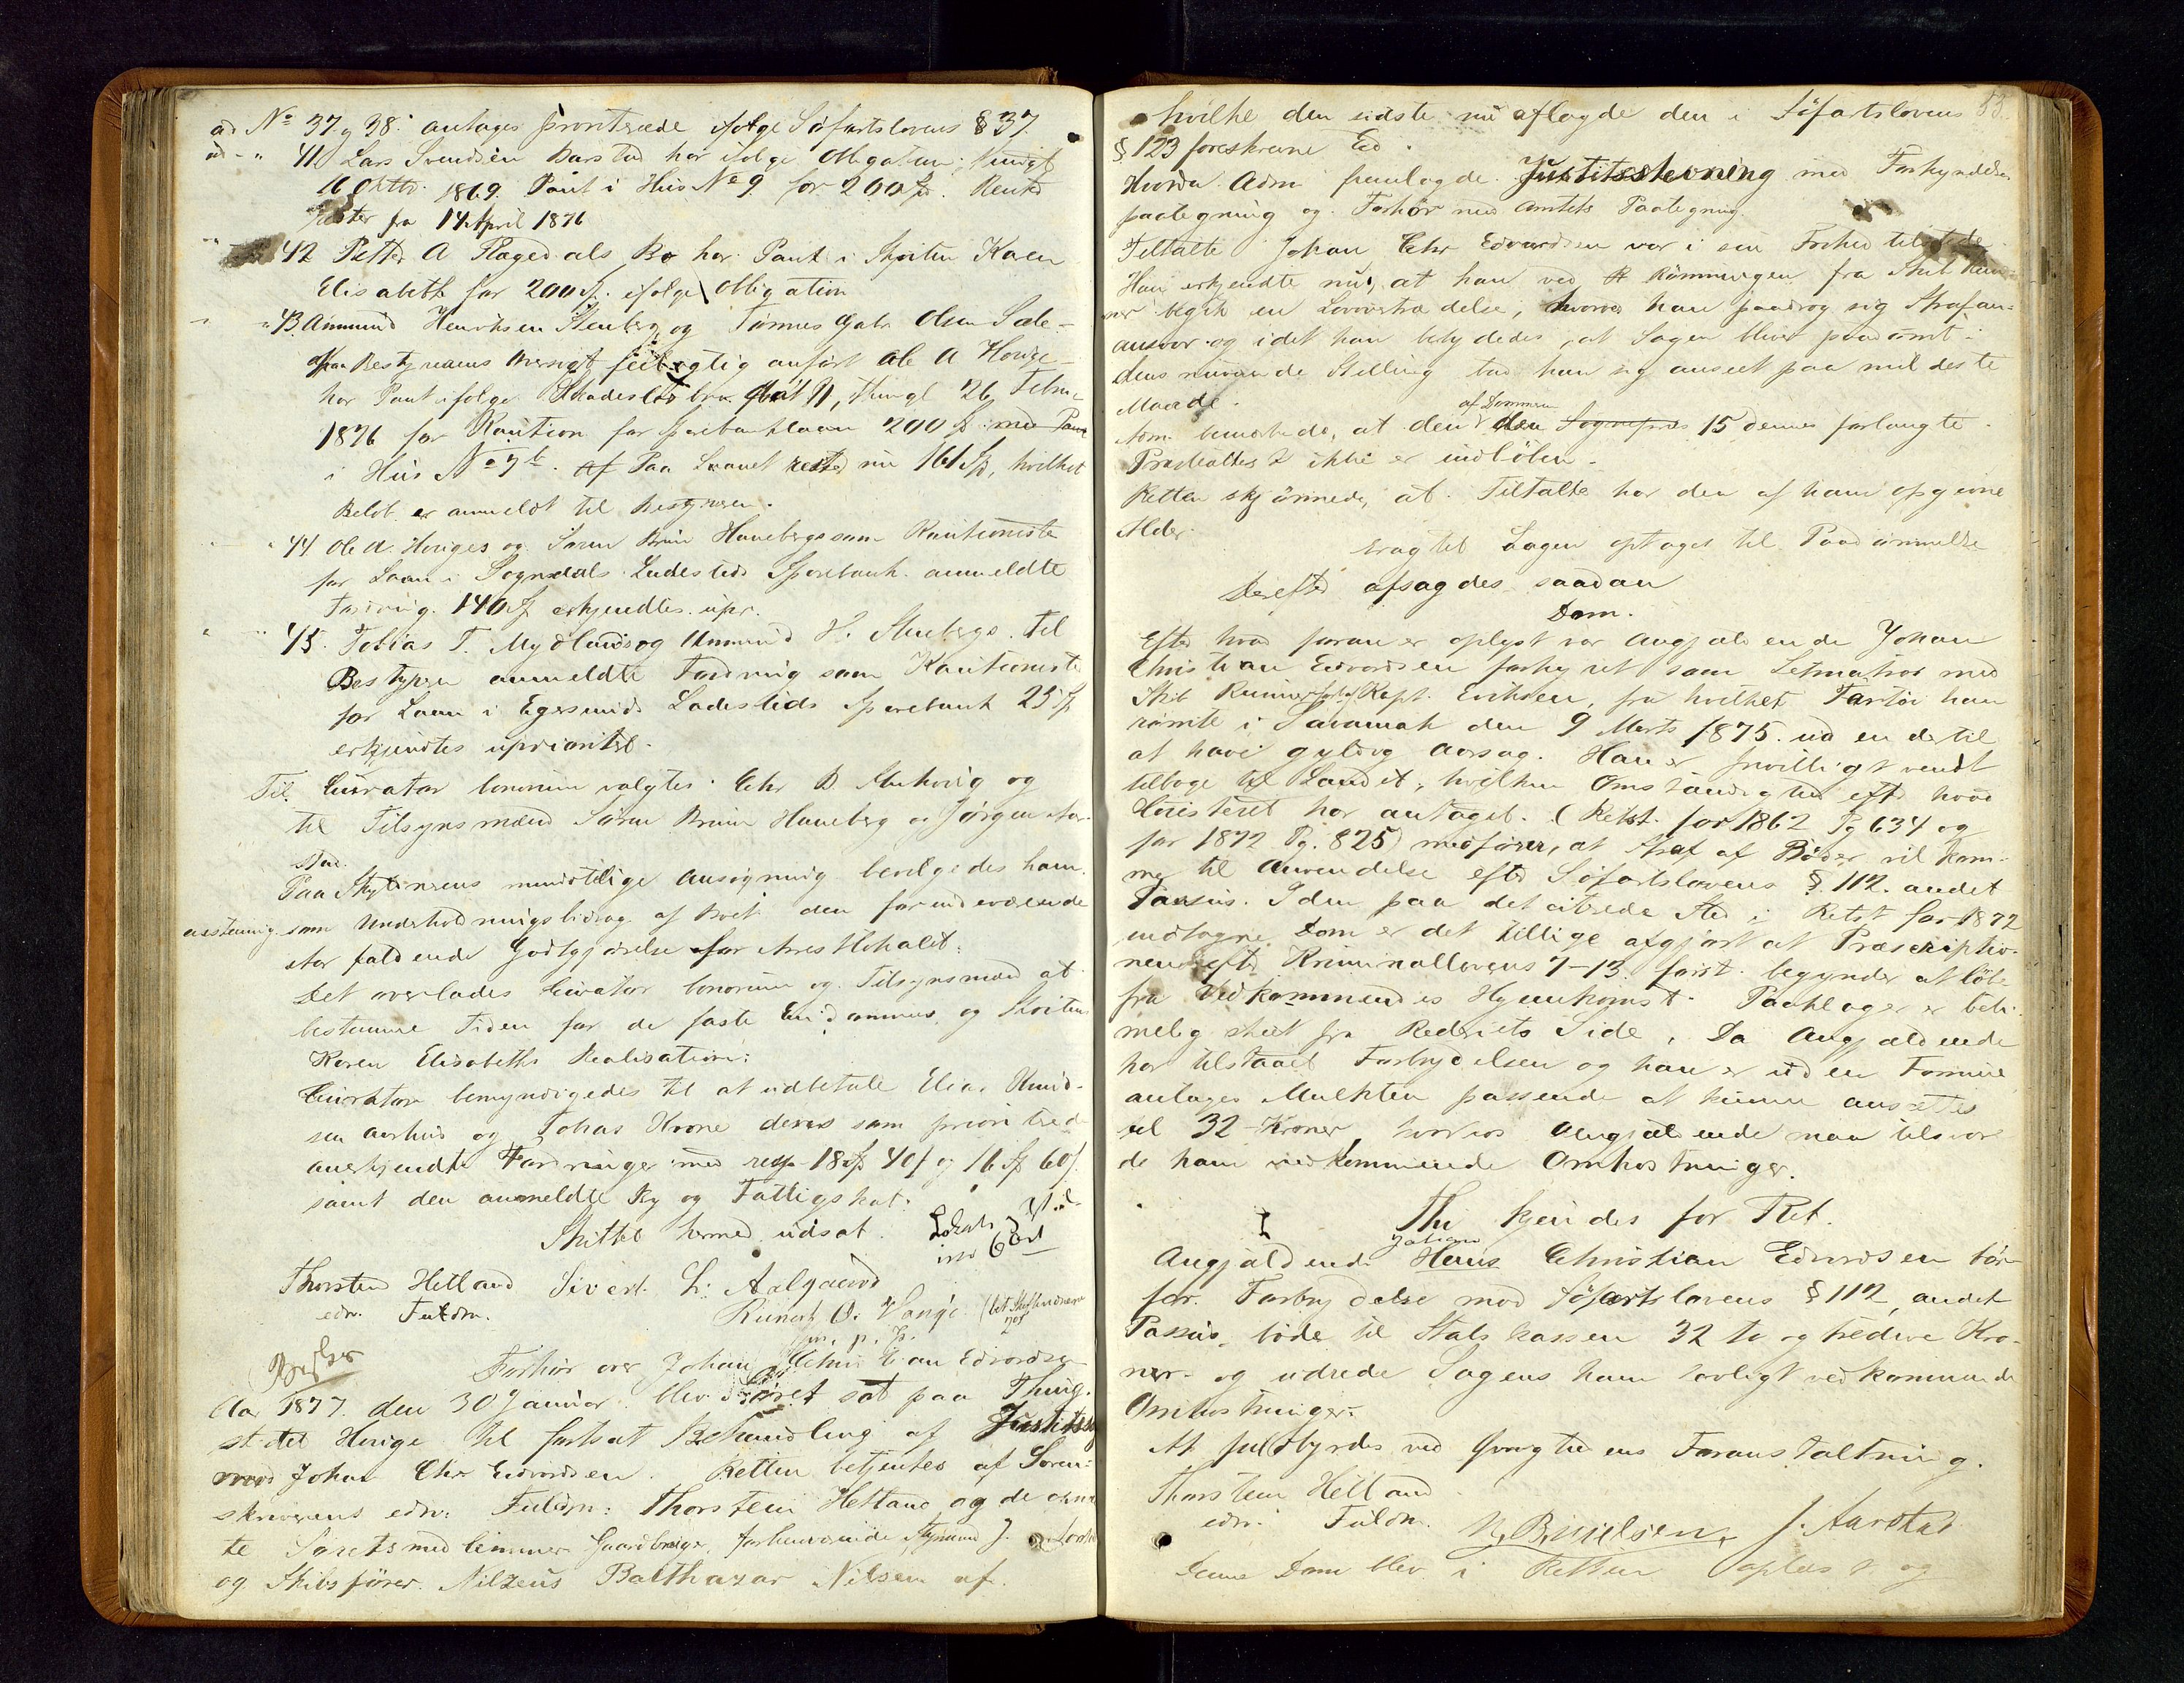 ad No 37 og 38. antages prioriterede ifølge Søfartslovens § 37
ad - " 41 Lars Svendsen Barstad har ifølge Obligation, thingl
16 Oktbr. 1869. Pant i Hus No 9 for 200 Spd. Rente
rester fra 14 April 1876
42 Petter A Flagedals Bo har Pant i Skøiten Karen
Elisabeth for 200 Spd. ifølge Obligation
43 Ommund Henriksen Stenberg og Tønnes Gabr Olsen Sæle-
paa Bestyrerens Oversigt feilagtig anført Ole A Houge
har Pant ifølge Skadesløsbrev thingl 26 Febru
1876 for Kaution for Sparebanklaan 200 Spd. med Pant
i Hus No 7b. Af Paa Laanet rester nu 161 Spd, hvilket
Beløb er anmeldt til Bestyreren.
44 Ole A. Houges og Søren Bruun Haneberg som Kautionister
for Laan i Sogndals Ladesteds Sparebank anmeldte
Fordring. 140 Spd erkjendtes upr.
45. Tobias T. Mydlands og Ommund H. Stenbergs til
Bestyreren anmeldte Fordring som Kautionister
for Laan i Egersunds Ladesteds Sparebank 25 Spd
erkjendtes uprioritet.
Til Curator bonorum valgtes Chr B. Stuhoug og
til Tilsynsmænd Søren Bruun Haneberg og Jørgen Aar-
stad.
Paa Skyldnerens mundtlige Ansøgning bevilgedes ham
som Underholdningsbidrag af Boet den forudeværende
for faldende Godtgjørelse for Arrestlokalet.
Det overlades Curator bonorum og Tilsynsmænd at
bestemme Tiden for de faste Eiendommes og Skøiten
Karen Elisabeths Realisation.
Curator bemyndigedes til at udbetale Elias Omund-
sen Aarhus og Johas Krone deres som prioriterede
anerkjendte Fordringer med resp 18 Spd 40 s og 16 Spd 60 s
samt den anmeldte By og Fattigskat.
Skiftet hermed udsat.
Thorsten Hetland Sivert L. Aalgaard
edsv. Fuldm. Rennert O. Vange
m. p. P.
Forhør over Johan Christian Edvardsen
Aar 1877 den 30 Januar blev Søret sat paa Thing-
stedet Houge til fortsat Behandling af Justitssag
mod Johan Chr Edvardsen. Retten betjentes af Soren-
skriverens edsv. Fuldm: Thorsten Hetland og de opnævn-
te Søretsmedlemmer Gaardbruger, forhenværende Styrmand J.
og Skibsfører Nilzeus Balthazar Nilsen af
hvilke den sidste nu aflagde den i Søfartslovens
§ 123 foreskrevne Ed.
Hvorda Adm fremlagde Justitsstevning med Forkyndelses
paategning og Forhør med Amtets Paategning.
Tiltalte Johan Chr Edvardsen var i sin Frihed tilstede
Han erkjendte nu, at han ved Rømningen fra Skib Run-
ner begik en Lovovertrædelse, hvorved han paadrog sig Strafan-
ansvar og idet han betydedes, at Sagen bliver paadømt i
dens nuværende Stilling bad han sig anseet paa mildeste
Maade.
af Dommeren
Som bemærkede, at den den Sognepræst 15 dennes forlangte
Præsteattest ikke er indløben.
Retten skjønnede, at Tiltalte har den af ham opgivne
Alder.
Eragtet Sagen optaget til Paadømmelse
Derefter afsagdes saadan
Dom.
Efter hvad foran er oplyst var Angjældende Johan
Christian Edvardsen forhyret som Letmatros med
Skib Runner ført af Kapt. Eriksen, fra hvilket Fartøi han
rømte i Savannah den 9 Marts 1875 uden dertil
at have gyldig Aarsag. Han er frivilligt vendt
tilbage til Landet, hvilken Omstændighed efter hvad
Høiesteret har antaget. (Retst. for 1862 Pg 634 og
for 1872 Pg. 825) medfører, at Straf af Bøder vil kom-
me til Anvendelse efter Søfartslovens § 112. andet
Passus. I den paa det citerede Sted i Retst for 1872
indtagne Dom er det tillige afgjort at Præscriptio-
nen efter Kriminallovens 7-13 først begynder at løbe
fra Vedkommendes Hjemkomst. Paaklage er beti-
melig skeet fra Rederiets Side. Da Angjældende
har tilstaaet Forbrydelsen og han er uden Formue
antages Mulkten passende at kunne ansættes
til 32 Kroner, hvorhos Angjældende maa tilsvare
de ham vedkommende Omkostninger.
Thi kjendes for Ret.
Johan
Angjældende Hans Christian Edvardsen bør
for Forbrydelse mod Søfartslovens § 112, andet
Passus bøde til Statskassen 32 to og tredive Kro-
ner og udrede Sagens ham lovligt vedkommende
Omkostninger.
At fuldbyrdes ved Øvrighedens Foranstaltning.
Thorsten Hetland
edsv. Fuldm. N. B. Nielsen J. Aarstad
Denne Dom blev i Retten oplæst og